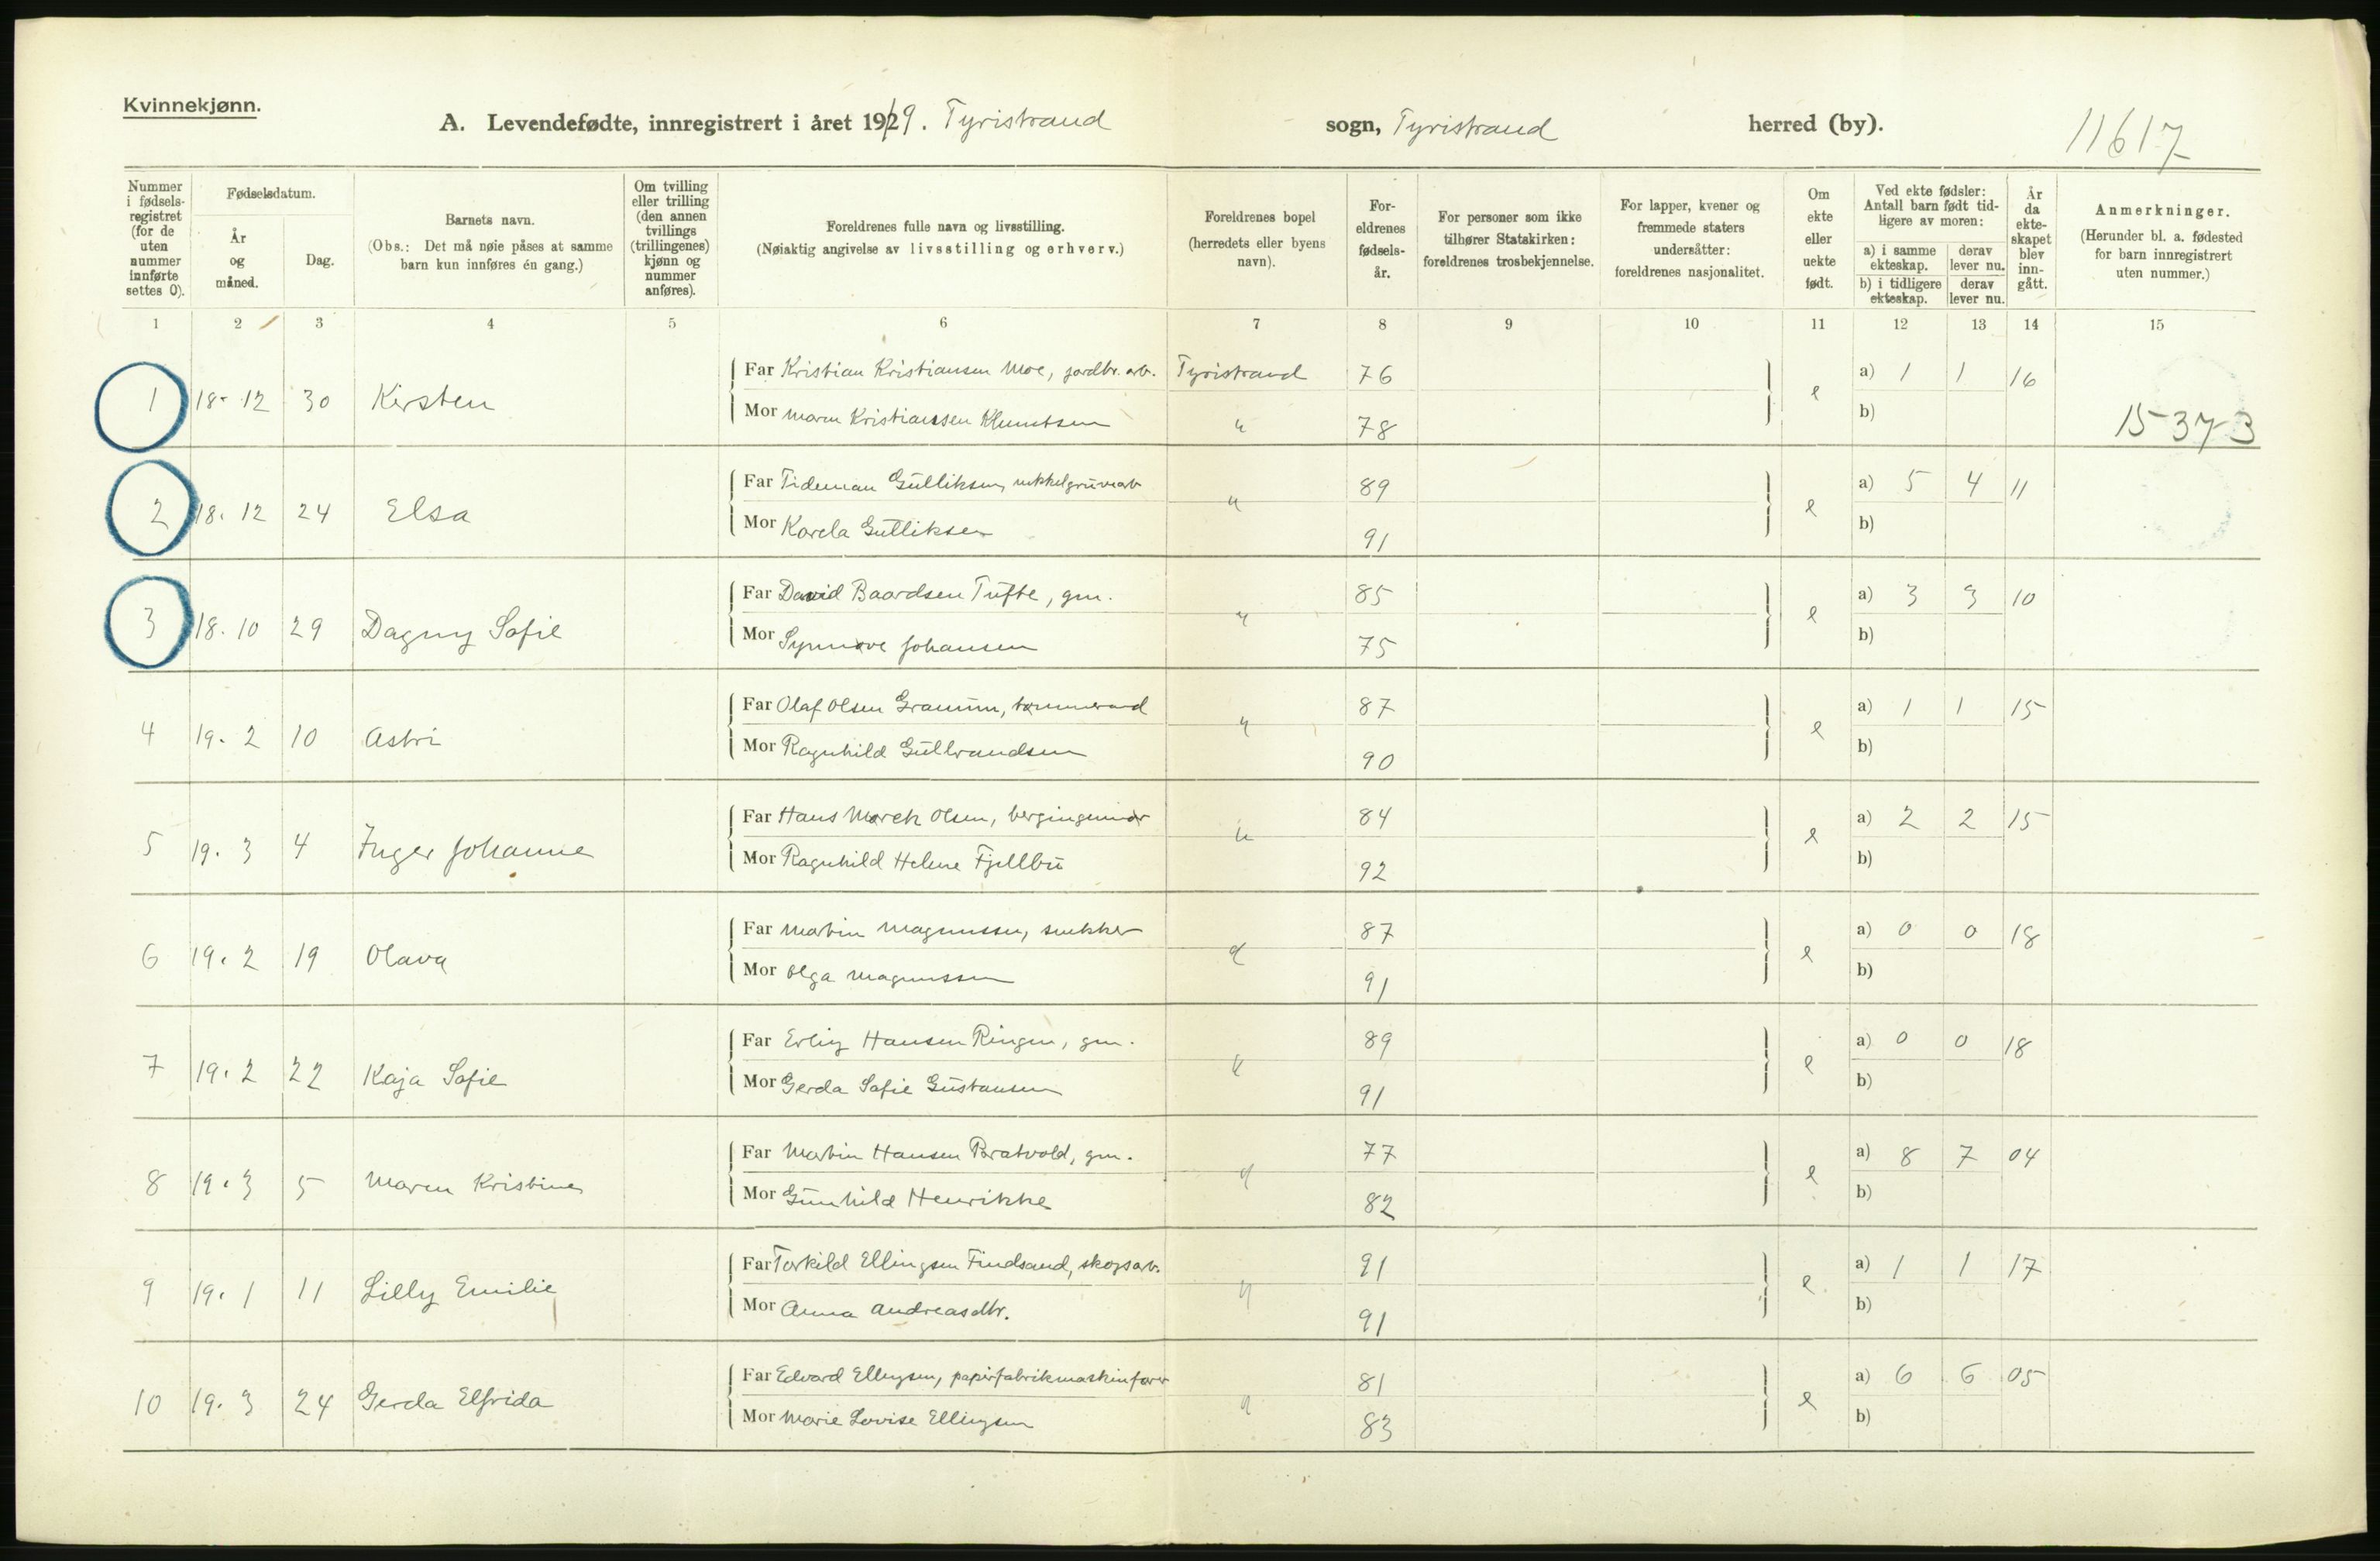 Kvinnekjønn.
A. Levendefødte, innregistrert i året 1919. Tyristrand sogn, Tyristrand herred (by).
11617
Nummer i fødselsregistret (for de uten nummer innførte settes 0).
Fødselsdatum.
År og måned.
Dag.
Barnets navn.
(Obs.: Det må nøie påses at samme barn kun innføres én gang.)
Om tvilling eller trilling (den annen tvillings (trillingenes) kjønn og nummer anføres).
Foreldrenes fulle navn og livsstilling.
(Nøiaktig angivelse av livsstilling og erhverv.)
Foreldrenes bopel (herredets eller byens navn).
Foreldrenes fødselsår.
For personer som ikke tilhører Statskirken: foreldrenes trosbekjennelse.
For lapper, kvener og fremmede staters undersåtter: foreldrenes nasjonalitet.
Om ekte eller uekte født.
Ved ekte fødsler: Antall barn født tidligere av moren:
a) i samme ekteskap. derav lever nu.
b) i tidligere ekteskap. derav lever nu.
År da ekteskapet blev inngått.
Anmerkninger.
(Herunder bl. a. fødested for barn innregistrert uten nummer.)
1 2 3 4 5 6 7 8 9 10 11 12 13 14 15
1 18- 12 30 Kirsten
Far Kristian Kristiansen Moe, jordbr. arb. Tyristrand 76 e a) 1 1 16
Mor Maren Kristianssen Klemetsen " 78 b)
15373
2 18. 12 24 Elsa
Far Tideman Gulliksen, nikkelgruvearb " 89 e a) 5 4 11
Mor Karela Gulliksen 91 b)
3 18. 10 29 Dagny Sofie
Far David Baardsen Tufte, gm. " 85 e a) 3 3 10
Mor Synnøve Johansen 75 b)
4 19. 2 10 Astri
Far Olaf Olsen 87 " e a) 1 1 15
Mor Ragnhild Gulbrandsen 90 b)
5 19. 3 4 Inger Johanne
Far Hans Mørch Olsen, bergingeniør " 84 e a) 2 2 15
Mor Ragnhild Helene Fjellbu 92 b)
6 19. 2 19 Olava
Far Martin Magnussen, snekker " 87 e a) 0 0 18
Mor Olga Magnussen 91 b)
7 19. 2 22 Kaja Sofie
Far Erling Hansen Ringen, gm. " 89 e a) 0 0 18
Mor Gerda Sofie Gustavsen 91 b)
8 19. 3 5 Maren Kristine
Far Martin Hansen Bratvold, gm. " 77 e a) 8 7 04
Mor Gunhild Henrikke 82 b)
9 19. 1 11 Lilly Emilie
Far Torkild Ellingsen Findsand, skogsarb. " 91 e a) 1 1 17
Mor Anna Andreasdtr. 91 b)
10 19. 3 24 Gerda Elfrida
Far Edvard Ellingsen, papirfabrikmaskinfører " 81 e a) 6 6 05
Mor Marie Lovise Ellingsen 83 b)